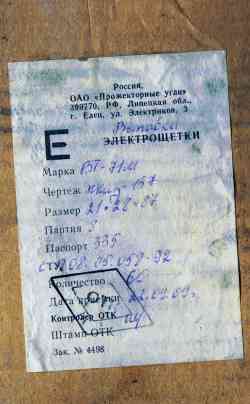 Россия,
ОАО «Прожекторные угли»
399770, РФ, Липецкая обл.,
г. Елец, ул. Электриков, 3
Е
ЭЛЕКТРОЩЕТКИ
Марка ВТ-71М
Чертеж
Размер 21×28×07
Партия
Паспорт 335
СТ 08.05.058-92
Количество 60
Дата приемки 22.09.09г.
Контролер ОТК
Штамп ОТК
Зак. № 4498